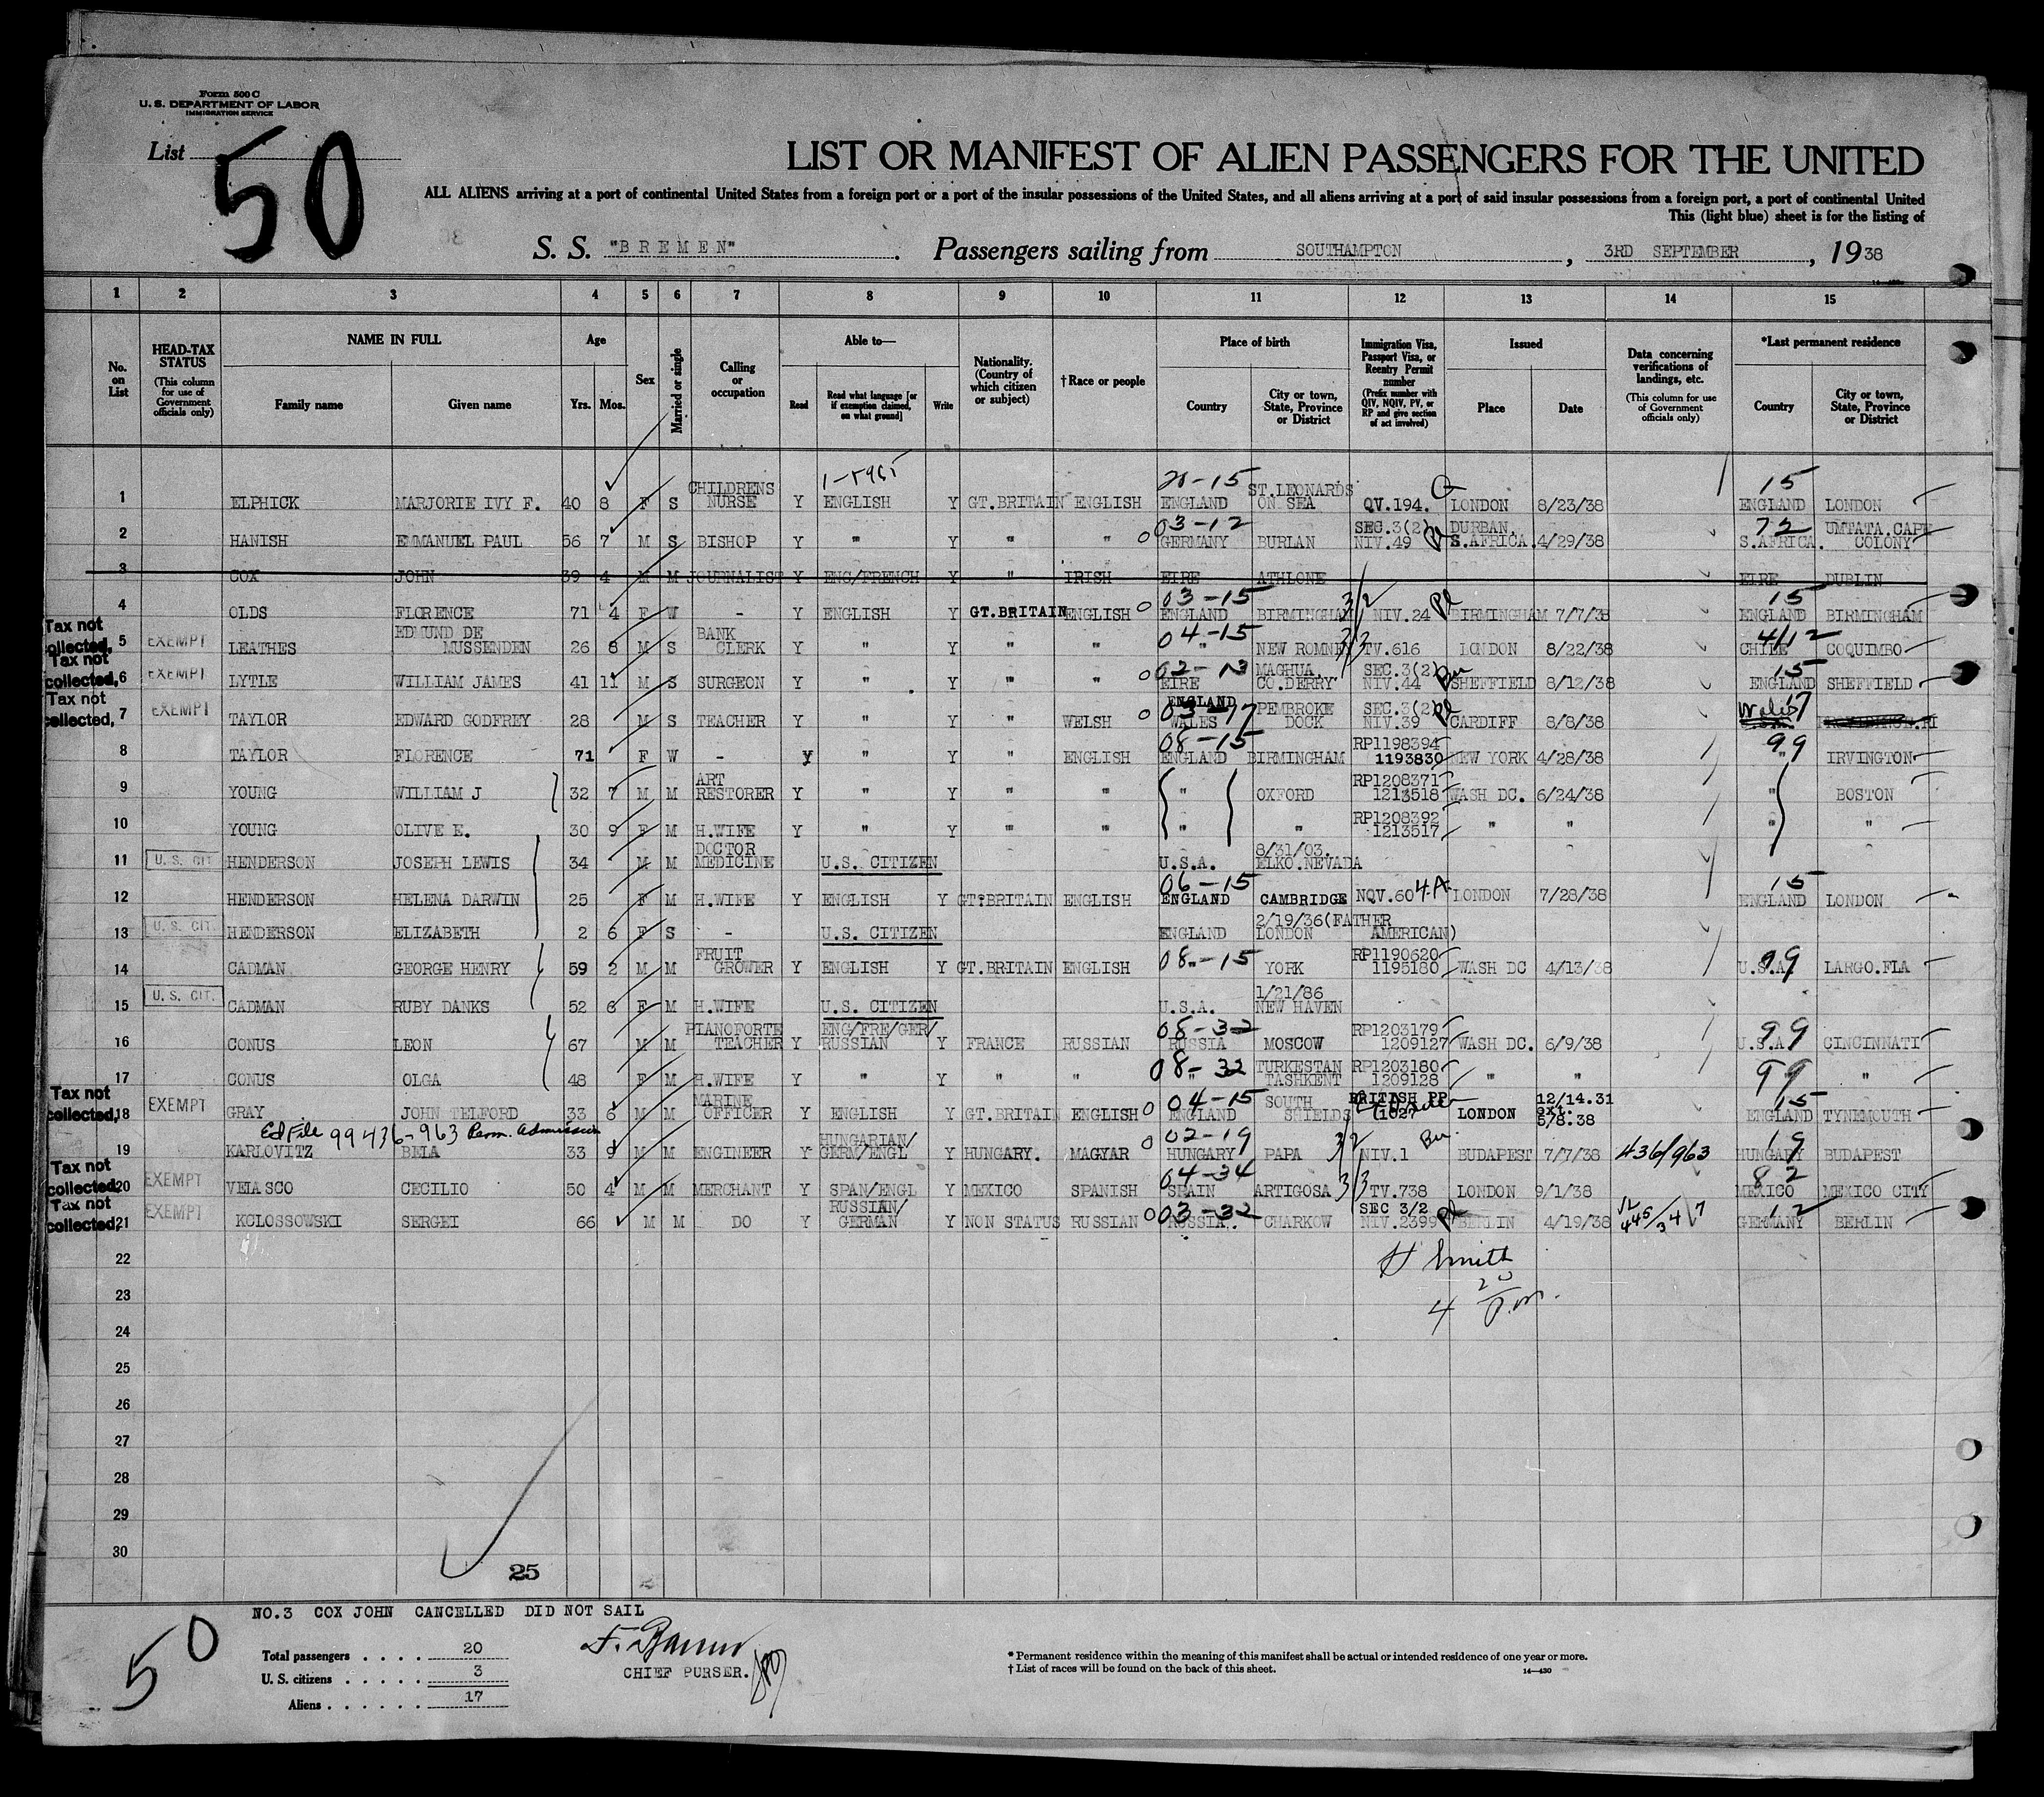 Form 500 C
U. S. DEPARTMENT OF LABOR
IMMIGRATION SERVICE
List 50
LIST OR MANIFEST OF ALIEN PASSENGERS FOR THE UNITED
ALL ALIENS arriving at a port of continental United States from a foreign port or a port of the insular possessions of the United States, and all aliens arriving at a port of said insular possessions from a foreign port, a port of continental United
This (light blue) sheet is for the listing of
S. S. "BREMEN" . Passengers sailing from SOUTHAMPTON , 3RD SEPTEMBER , 19 38
1 2 3 4 5 6 7 8 9 10 11 12 13 14 15
No. on List
HEAD-TAX STATUS (This column for use of Government officials only)
NAME IN FULL Family name Given name
Age Yrs. Mos.
Sex
Married or single
Calling or occupation
Able to— Read Read what language [or if exemption claimed, on what ground] Write
Nationality. (Country of which citizen or subject)
†Race or people
Place of birth Country City or town, State, Province or District
Immigration Visa, Passport Visa, or Reentry Permit number (Prefix number with QIV, NQIV, PV, or RP and give section of act involved)
Issued Place Date
Data concerning verifications of landings, etc. (This column for use of Government officials only)
*Last permanent residence Country City or town, State, Province or District
20-15 15
1 ELPHICK MARJORIE IVY F. 40 8 F S CHILDRENS NURSE Y ENGLISH Y GT.BRITAIN ENGLISH ENGLAND ST.LEONARDS ON SEA QV.194. LONDON 8/23/38 ENGLAND LONDON
03-12 72
2 HANISH EMMANUEL PAUL 56 7 M S BISHOP Y " Y " " GERMANY BURLAN SEC.3(2) NIV.49 DURBAN S.AFRICA. 4/29/38 S.AFRICA. UMTATA.CAPE COLONY
3 COX JOHN 39 4 M M JOURNALIST Y ENG/FRENCH Y " IRISH EIRE ATHLONE EIRE DUBLIN
03-15 3/2 15
4 OLDS FLORENCE 71 4 F W - Y ENGLISH Y GT.BRITAIN ENGLISH ENGLAND BIRMINGHAM NIV.24 BIRMINGHAM 7/7/38 ENGLAND BIRMINGHAM
04-15 3/3 4/12
Tax not collected, 5 EXEMPT LEATHES EDMUND DE MUSSENDEN 26 8 M S BANK CLERK Y " Y " " " NEW ROMNEY TV.616 LONDON 8/22/38 CHILE COQUIMBO
02-13 15
Tax not collected, 6 EXEMPT LYTLE WILLIAM JAMES 41 11 M S SURGEON Y " Y " " EIRE MAGHUA. CO.DERRY SEC.3(2) NIV.44 SHEFFIELD 8/12/38 ENGLAND SHEFFIELD
ENGLAND 03-17 Wales
Tax not collected, 7 EXEMPT TAYLOR EDWARD GODFREY 28 M S TEACHER Y " Y " WELSH WALES PEMBROKE DOCK SEC.3(2) NIV.39 CARDIFF 8/8/38
08-15 99
8 TAYLOR FLORENCE 71 F W - Y " Y " ENGLISH ENGLAND BIRMINGHAM RP1198394 1193830 NEW YORK 4/28/38 IRVINGTON
9 YOUNG WILLIAM J 32 7 M M ART RESTORER Y " Y " " " OXFORD RP1208371 1213518 WASH DC. 6/24/38 " BOSTON
10 YOUNG OLIVE E. 30 9 F M H.WIFE Y " Y " " " " RP1208392 1213517 " " " "
11 U.S. CIT HENDERSON JOSEPH LEWIS 34 M M DOCTOR MEDICINE U.S. CITIZEN U.S.A. 8/31/03. ELKO.NEVADA
06-15 15
12 HENDERSON HELENA DARWIN 25 F M H.WIFE Y ENGLISH Y GT.BRITAIN ENGLISH ENGLAND CAMBRIDGE NQV.604A LONDON 7/28/38 ENGLAND LONDON
13 U.S. CIT. HENDERSON ELIZABETH 2 6 F S - U.S. CITIZEN ENGLAND 2/19/36(FATHER LONDON AMERICAN)
08-15 99
14 CADMAN GEORGE HENRY 59 2 M M FRUIT GROWER Y ENGLISH Y GT.BRITAIN ENGLISH YORK RP1190620 1195180 WASH DC 4/13/38 U.S.A. LARGO.FLA
15 U.S. CIT. CADMAN RUBY DANKS 52 6 F M H.WIFE U.S. CITIZEN U.S.A. 1/21/86 NEW HAVEN
08-32 99
16 CONUS LEON 67 M M PIANOFORTE TEACHER Y ENG/FRE/GER/ RUSSIAN Y FRANCE RUSSIAN RUSSIA MOSCOW RP1203179 1209127 WASH DC. 6/9/38 U.S.A. CINCINNATI
08-32 99
17 CONUS OLGA 48 F M H.WIFE Y " Y " " " TURKESTAN TASHKENT RP1203180 1209128 " " "
04-15 15
Tax not collected, 18 EXEMPT GRAY JOHN TELFORD 33 6 M M MARINE OFFICER Y ENGLISH Y GT.BRITAIN ENGLISH ENGLAND SOUTH SHIELDS BRITISH PP (1027 LONDON 12/14.31 ext. 5/8.38 ENGLAND TYNEMOUTH
Ed File 99436-963 Perm. Admission 02-19 3/2 19
19 KARLOVITZ BELA 33 9 M M ENGINEER Y HUNGARIAN/ GERM/ENGL Y HUNGARY. MAGYAR HUNGARY PAPA NIV.1 BUDAPEST 7/7/38 436/963 HUNGARY BUDAPEST
04-34 3/3 82
Tax not collected, 20 EXEMPT VELASCO CECILIO 50 4 M M MERCHANT Y SPAN/ENGL Y MEXICO SPANISH SPAIN ARTIGOSA TV.738 LONDON 9/1/38 MEXICO MEXICO CITY
03-32 12
Tax not collected, 21 EXEMPT KOLOSSOWSKI SERGEI 66 M M DO Y RUSSIAN/ GERMAN Y NON STATUS RUSSIAN RUSSIA. CHARKOW SEC 3/2 NIV.2399 BERLIN 4/19/38 GERMANY BERLIN
22
H Smith
23
4 20 p.m.
24
25
26
27
28
29
30
25
NO.3 COX JOHN CANCELLED DID NOT SAIL
50
Total passengers . . . . 20
U. S. citizens . . . . . 3
Aliens . . . . . . 17
CHIEF PURSER.
* Permanent residence within the meaning of this manifest shall be actual or intended residence of one year or more.
† List of races will be found on the back of this sheet.
14—430